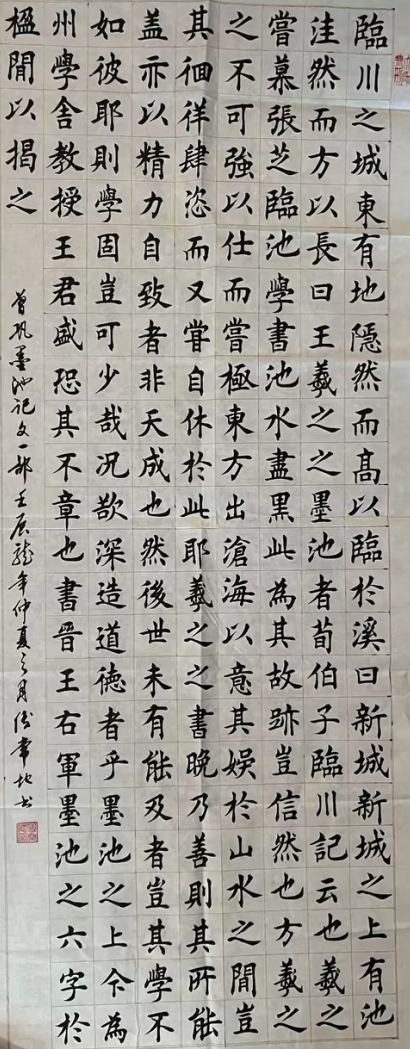 臨川之城東有地隱然而髙以臨於溪曰新城新城之上有池
洼然而方以長曰王羲之之墨池者荀伯子臨川記云也羲之
嘗慕張芝臨池學書池水盡黑此為其故跡豈信然也方羲之
之不可強以仕而嘗極東方出滄海以意其娛於山水之閒豈
其徊徉肆恣而又嘗自休於此耶羲之之書晚乃善則其所能
蓋亦以精力自致者非天成也然後世未有能及者豈其學不
如彼耶則學固豈可少哉况欲深造道德者乎墨池之上今為
州學舍教授王君盛恐其不章也書晉王右軍墨池之六字於
楹閒以揭之
曾巩墨池记文一部壬辰龍年仲夏之月書